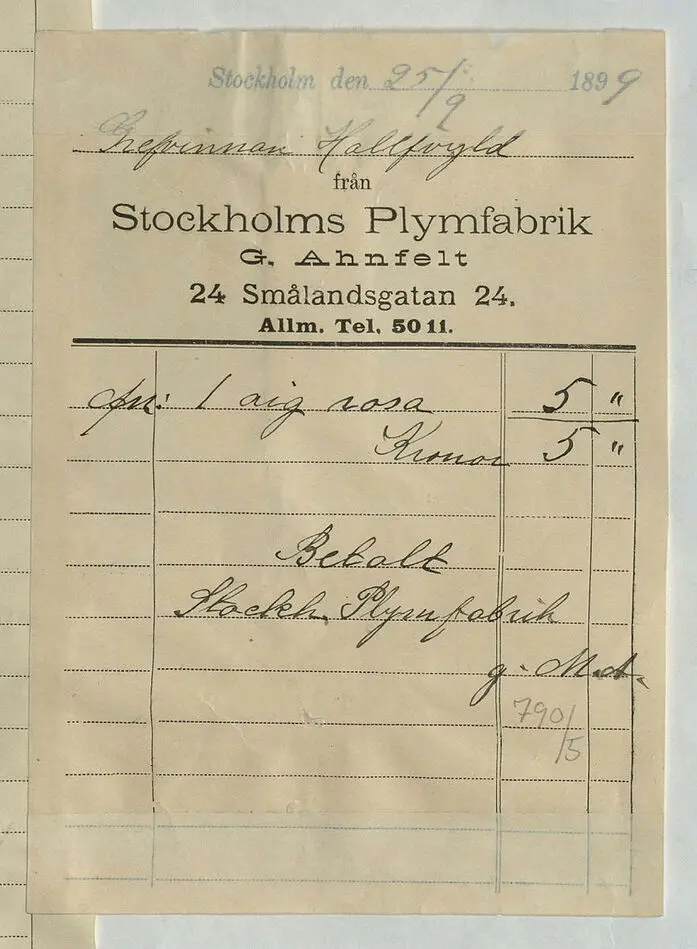 Stockholm den 25/9 1899
Grefvinnan Hallfvyld
från
Stockholms Plymfabrik
G. Ahnfelt
24 Smålandsgatan 24.
Allm. Tel. 5011.
1 aig rosa 5 "
Kronor 5 "
Betalt
Stockh. Plymfabrik
g. M.A.
790/5